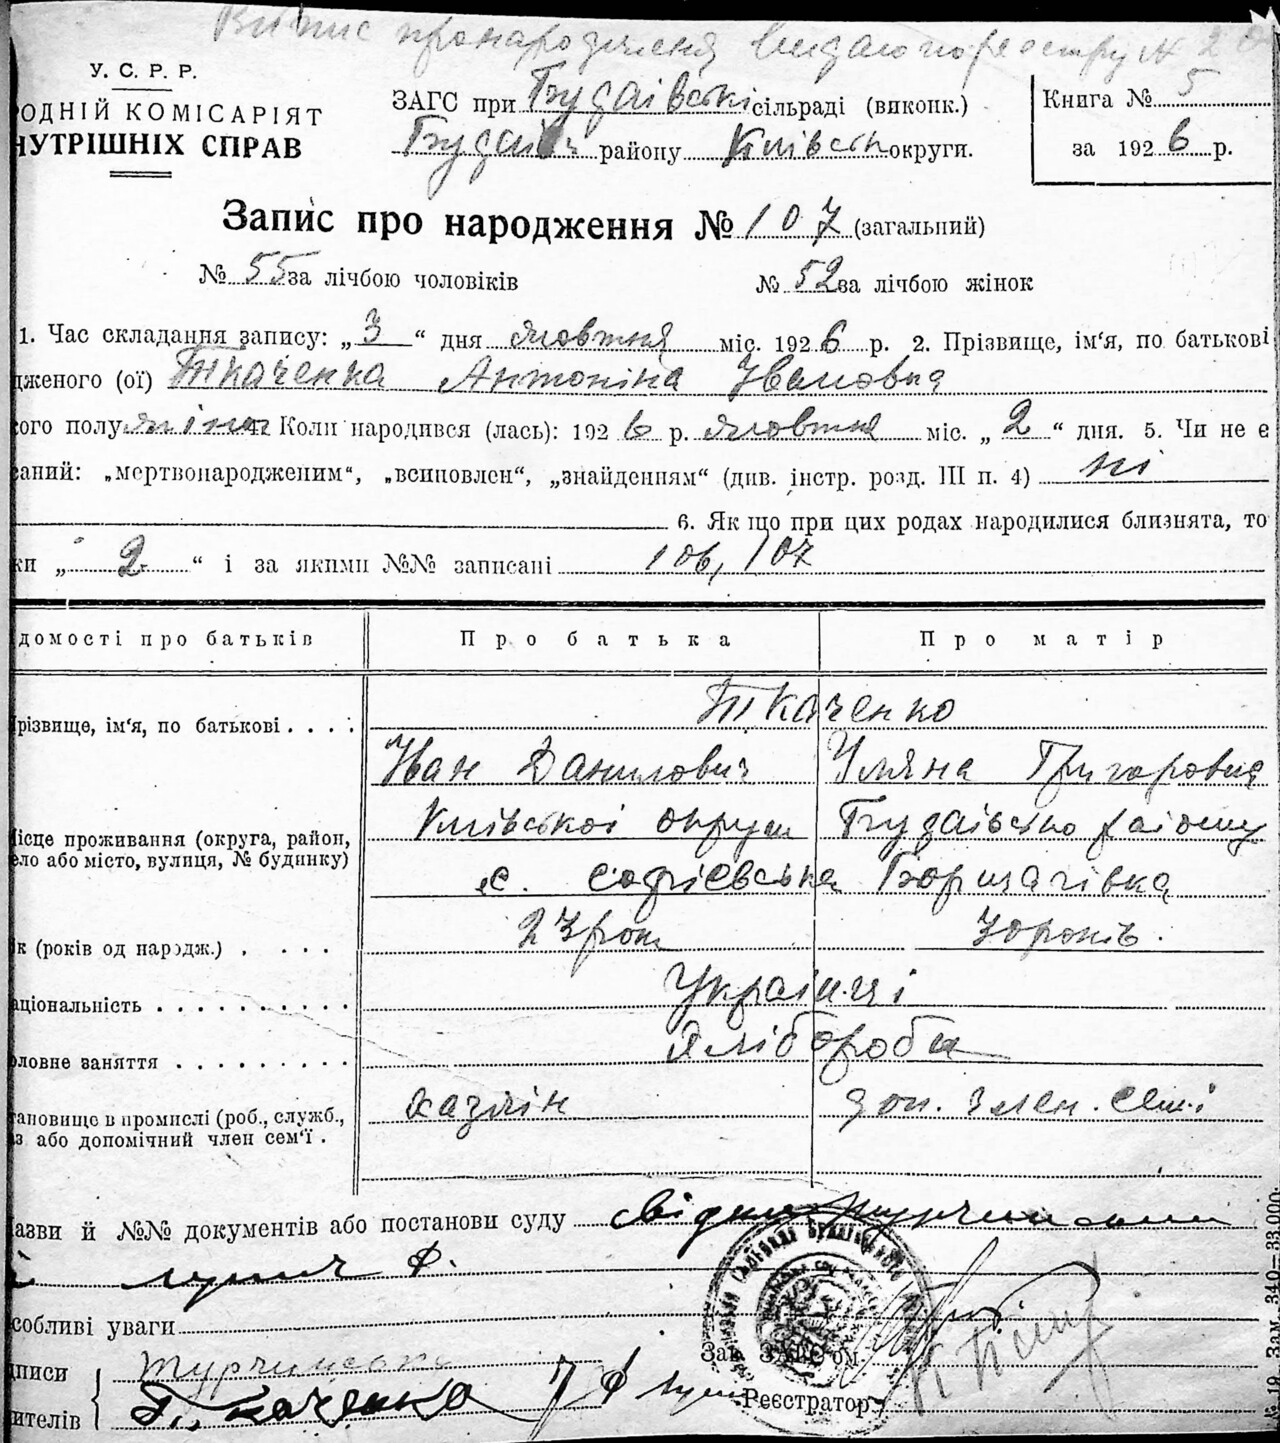 Випис про народження видаю по реєстру № 2
У. С. Р. Р.
ОДНІЙ КОМІСАРІЯТ
НУТРІШНІХ СПРАВ
ЗАГС при Будаївські сільраді (виконк.)
Будаїв району Київськ округи.
Книга № 5
за 1926 р.
Запис про народження № 107 (загальний)
№ 55 за лічбою чоловіків № 52 за лічбою жінок
1. Час складання запису: „3“ дня жовтня міс. 1926 р. 2. Прізвище, ім‘я, по батькові
дженого (ої) Ткаченка Антоніна Івановна
ого полу жіноч 4. Коли народився (лась): 1926 р. жовтня міс. „2“ дня. 5. Чи не є
саний: „мертвонародженим“, „всиновлен“, „знайденням“ (див. інстр. розд. III п. 4) ні
6. Як що при цих родах народилися близнята, то
ки „2“ і за якими №№ записані 106, 107
домості про батьків Про батька Про матір
різвище, ім‘я, по батькові . . . . Ткаченко
Іван Данилович Уляна Григоровна
ісце проживання (округа, район,
ело або місто, вулиця, № будинку)
Київської округи Будаївсько району
с. Софієвська Борщагівка
к (років од нардж.) . . . . 23 рок 30 років.
аціональність . . . . . . . . . . Українці
оловне заняття . . . . . . . . . Хлібороби
тановище в промислі (роб., служб.,
аз. або допомічний член сем‘ї .
хазяїн доп. член. семї
азви й №№ документів або постанови суду свідки Турчинськи
й Ф.
собливі уваги
дписи
ителів
Турчинська
Ткаченко
Зав. ЗАГС‘ом
Реєстратор
№ 19. Зам. 340—33.000.